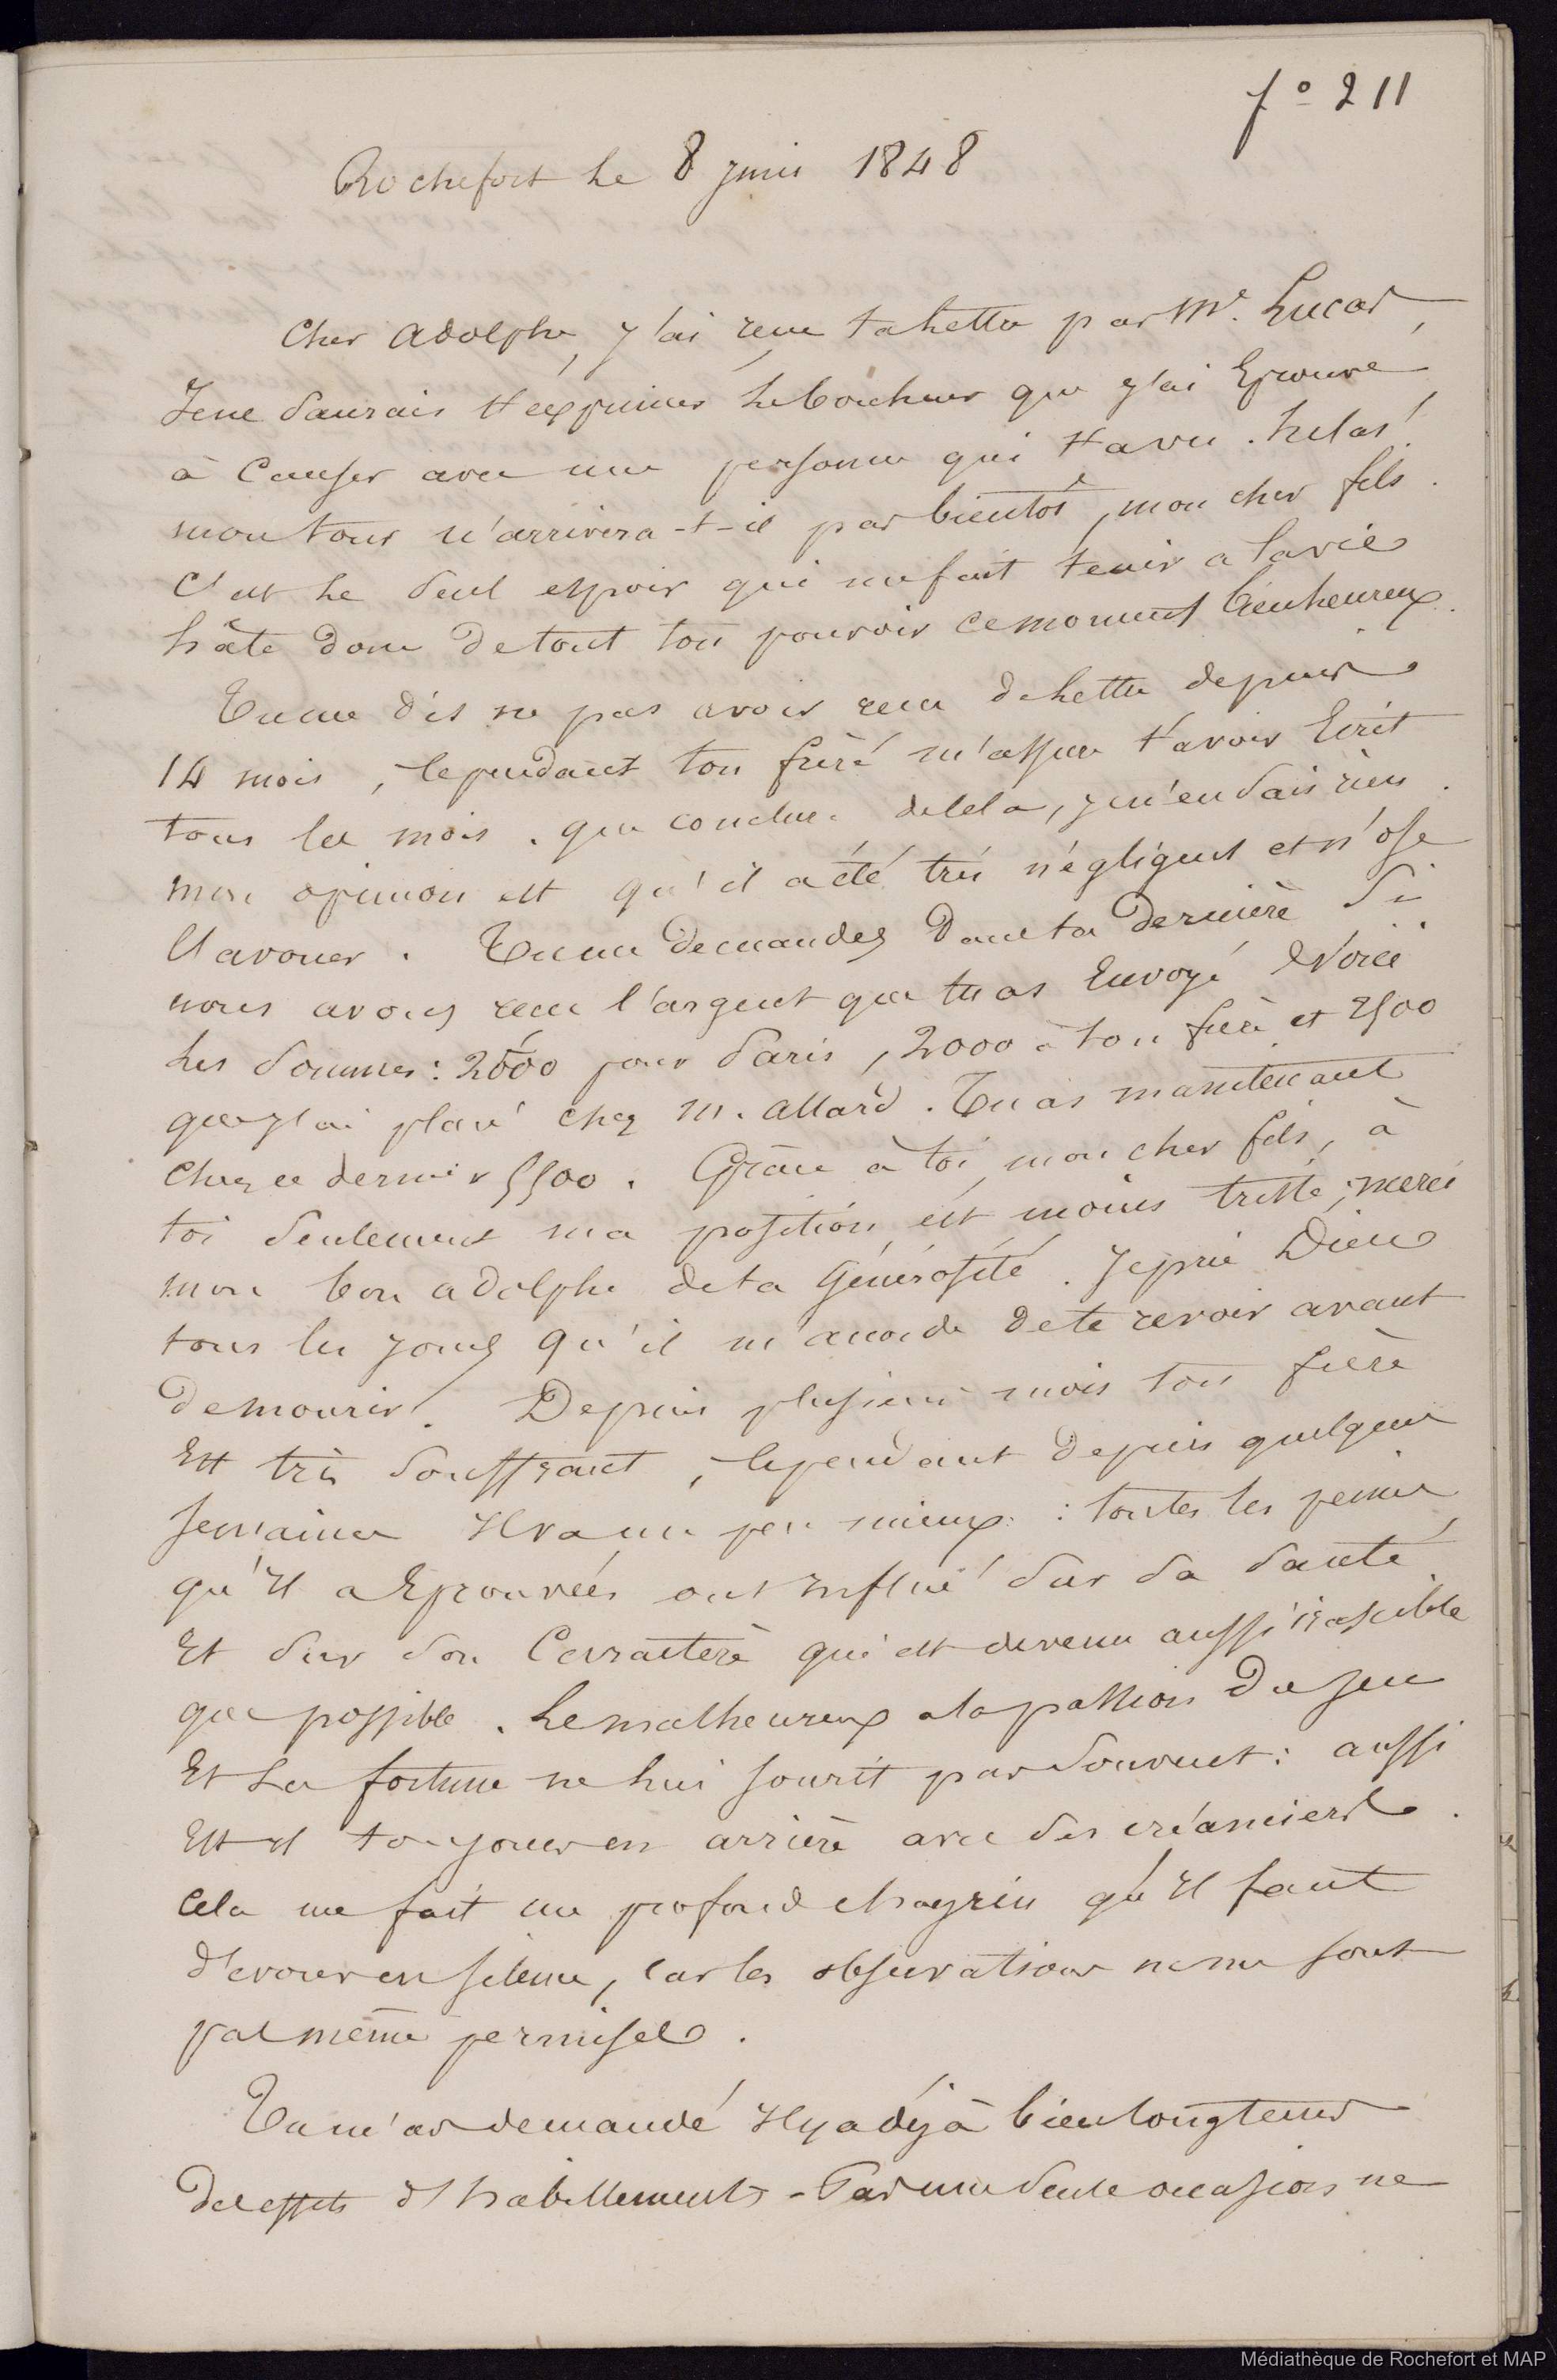 fo 211
Rochefort le 8 juin 1848
Cher Adolphe, j'ai reçu ta lettre par Mr. Lucas,
Je ne saurais t'exprimer le bonheur que j'ai éprouvé
à causer avec une personne qui t'a vu. hélas!
mon tour n'arrivera-t-il pas bientôt, mon cher fils.
C'est le seul espoir qui me fait tenir a la vie
hâte donc de tout ton pouvoir ce moment bienheureux.
Tu me dis ne pas avoir reçu de lettre depuis
14 mois, cependant ton frère m'assure t'avoir Ecrit
tous les mois. que conclure de cela, je n'en sais rien.
mon opinion est qu'il a été très négligent et n'ose
l'avouer. Tu me demandes dans ta dernière si
nous avons reçu l'argent que tu as Envoyé Voici
les sommes: 2500 pour Paris, 2000 à ton frère et 2500
que j'ai placé chez M. Allard. Tu as maintenant
chez ce dernier 5500. Grâce à toi mon cher fils, à
toi seulement ma position est moins triste; merci
mon bon adolphe de ta Générosité. Je prie Dieu
tous les jours qu'il m'accorde de te revoir avant
de mourir. Depuis plusieurs mois ton frère
Est très souffrant, cependant depuis quelques
semaines Il va un peu mieux: toutes les peines
qu'Il a Eprouvées ont Influé sur sa santé
Et sur son Carractère qui est devenu aussi irascible
que possible. Le malheureux a la passion du jeu
Et La fortune ne lui sourit pas souvent: aussi
Est-Il toujours en arrière avec ses créanciers.
Cela me fait un profond chagrin qu'Il faut
dévorer en silence, car les observations ne me sont
pas même permises.
Tu m'as demandé Il y a déjà bien longtems
des effets d'habillements - Pas une seule occasion ne
Médiathèque de Rochefort et MAP